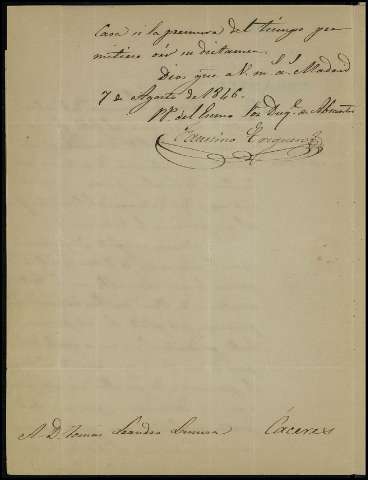 Casa si la premura del tiempo per
mitiere oir su dictamen.
Dios gue a V. m. a. Madrid
7 de Agosto de 1846.
PP. del Excmo Sor Duq. de Abrantes
Faustino
A D. Tomás Leandro Cáceres